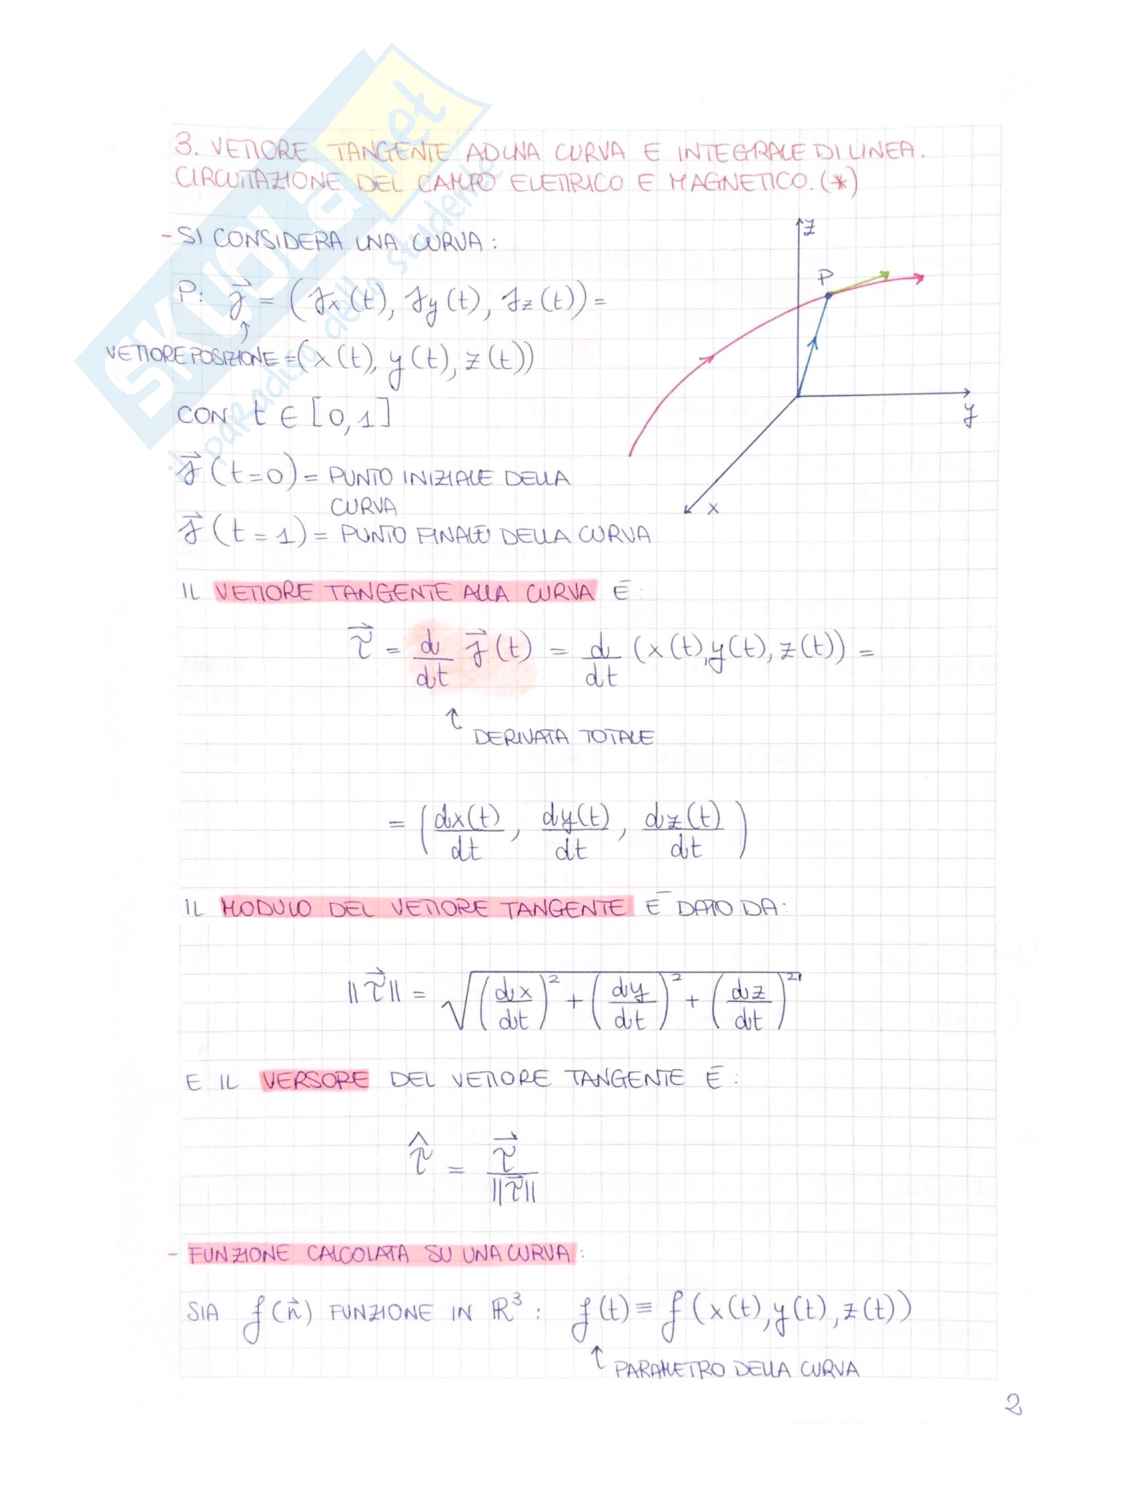 3. VETTORE TANGENTE AD UNA CURVA E INTEGRALE DI LINEA.
CIRCUITAZIONE DEL CAMPO ELETTRICO E MAGNETICO. (*)
- SI CONSIDERA UNA CURVA:
P: γ⃗ = (γx(t), γy(t), γz(t)) =
↑
VETTORE POSIZIONE = (x(t), y(t), z(t))
CON t ∈ [0,1]
γ⃗(t=0) = PUNTO INIZIALE DELLA
CURVA
γ⃗(t=1) = PUNTO FINALE DELLA CURVA
z
P
y
x
IL VETTORE TANGENTE ALLA CURVA È:
τ⃗ = d/dt γ⃗(t) = d/dt (x(t), y(t), z(t)) =
↑ DERIVATA TOTALE
= (dx(t)/dt, dy(t)/dt, dz(t)/dt)
IL MODULO DEL VETTORE TANGENTE È DATO DA:
||τ⃗|| = √((dx/dt)² + (dy/dt)² + (dz/dt)²)
E IL VERSORE DEL VETTORE TANGENTE È:
τ̂ = τ⃗/||τ⃗||
- FUNZIONE CALCOLATA SU UNA CURVA:
SIA f(r⃗) FUNZIONE IN ℝ³: f(t) ≡ f(x(t), y(t), z(t))
↑ PARAMETRO DELLA CURVA
2
SKUOLA.net
il paradiso dello studente